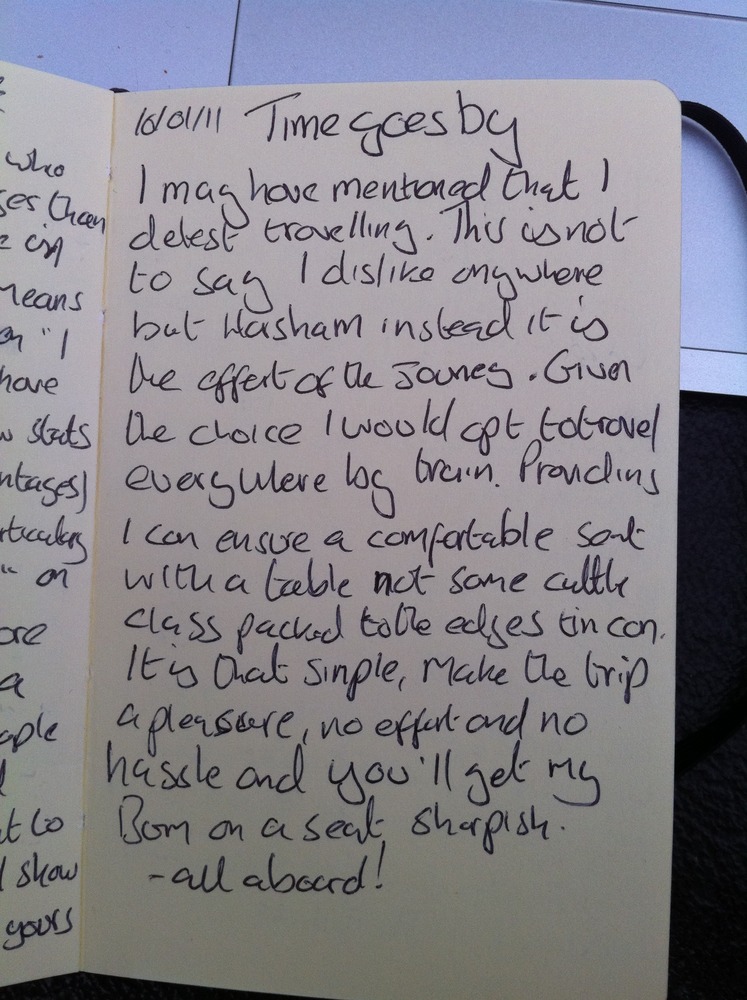 who
ses than
e in
Means
on "I
have
w stats
ntages)
rticulary
" on
ore
a
aple
t to
I show
yours
16/01/11 Time goes by
I may have mentioned that I
detest travelling. This is not
to say I dislike anywhere
but Hasham instead it is
the effort of the Journey. Given
the choice I would opt to travel
everywhere by train. Providing
I can ensure a comfortable seat
with a table not some cattle
class packed to the edges tin can.
It is that simple, Make the trip
a pleasure, no effort and no
hassle and you'll get my
Bom on a seat sharpish.
-all aboard!